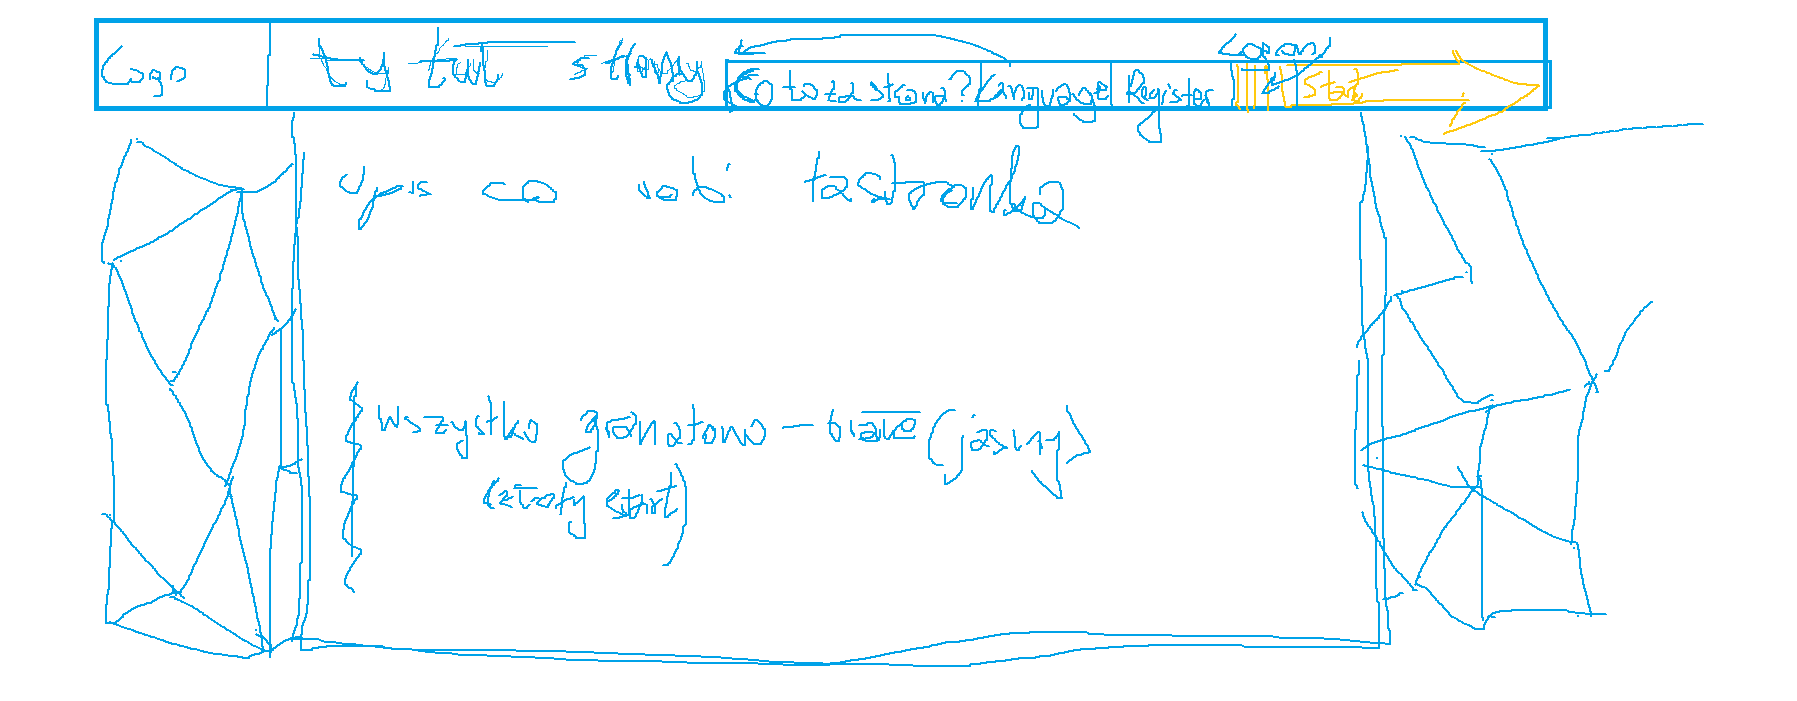 Logo
tytuł strony
Logon
Co to za strona? Language Register Start
opis co robi ta stronka
Wszystko granatowo - białe (jasny)
(złoty start)